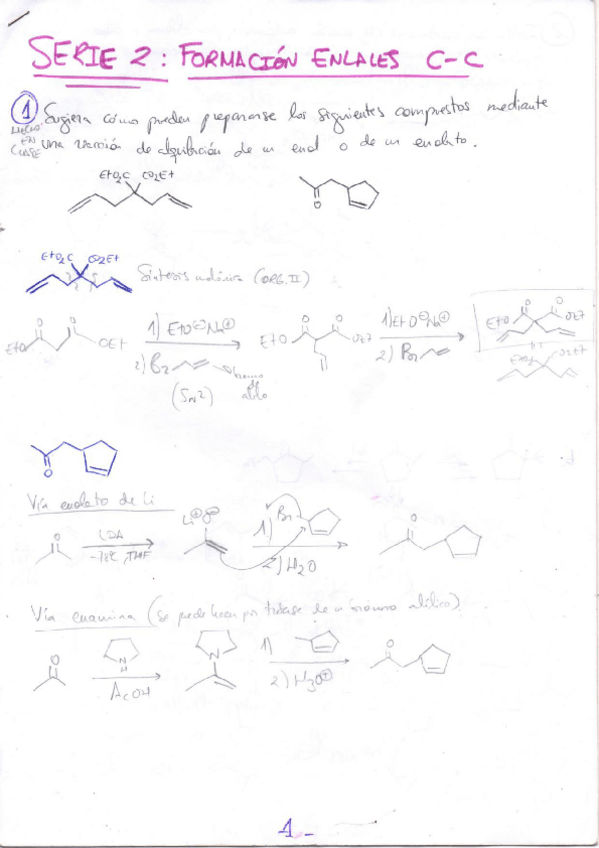 SERIE 2: FORMACIÓN ENLACES C-C
① Sugiera cómo pueden prepararse los siguientes compuestos mediante
HECHO EN CLASE
una versión de alquilación de un enol o de un enolato.
EtO2C CO2Et
O
EtO2C CO2Et
Síntesis malónica (ORG. II)
O O
EtO OEt
1) EtO⊖Na⊕
2) Br
(SN2)
Bromuro de alilo
O O
EtO OEt
1) EtO⊖Na⊕
2) Br
O O
EtO OEt
EtO2C CO2Et
O
Vía enolato de Li
O
LDA
-78ºC, THF
Li⊕ O⊖
1) Br
2) H2O
O
Vía enamina (se puede hacer por tratarse de un bromuro alílico)
O
N
H
AcOH
N
1)
2) H3O⊕
O
1-